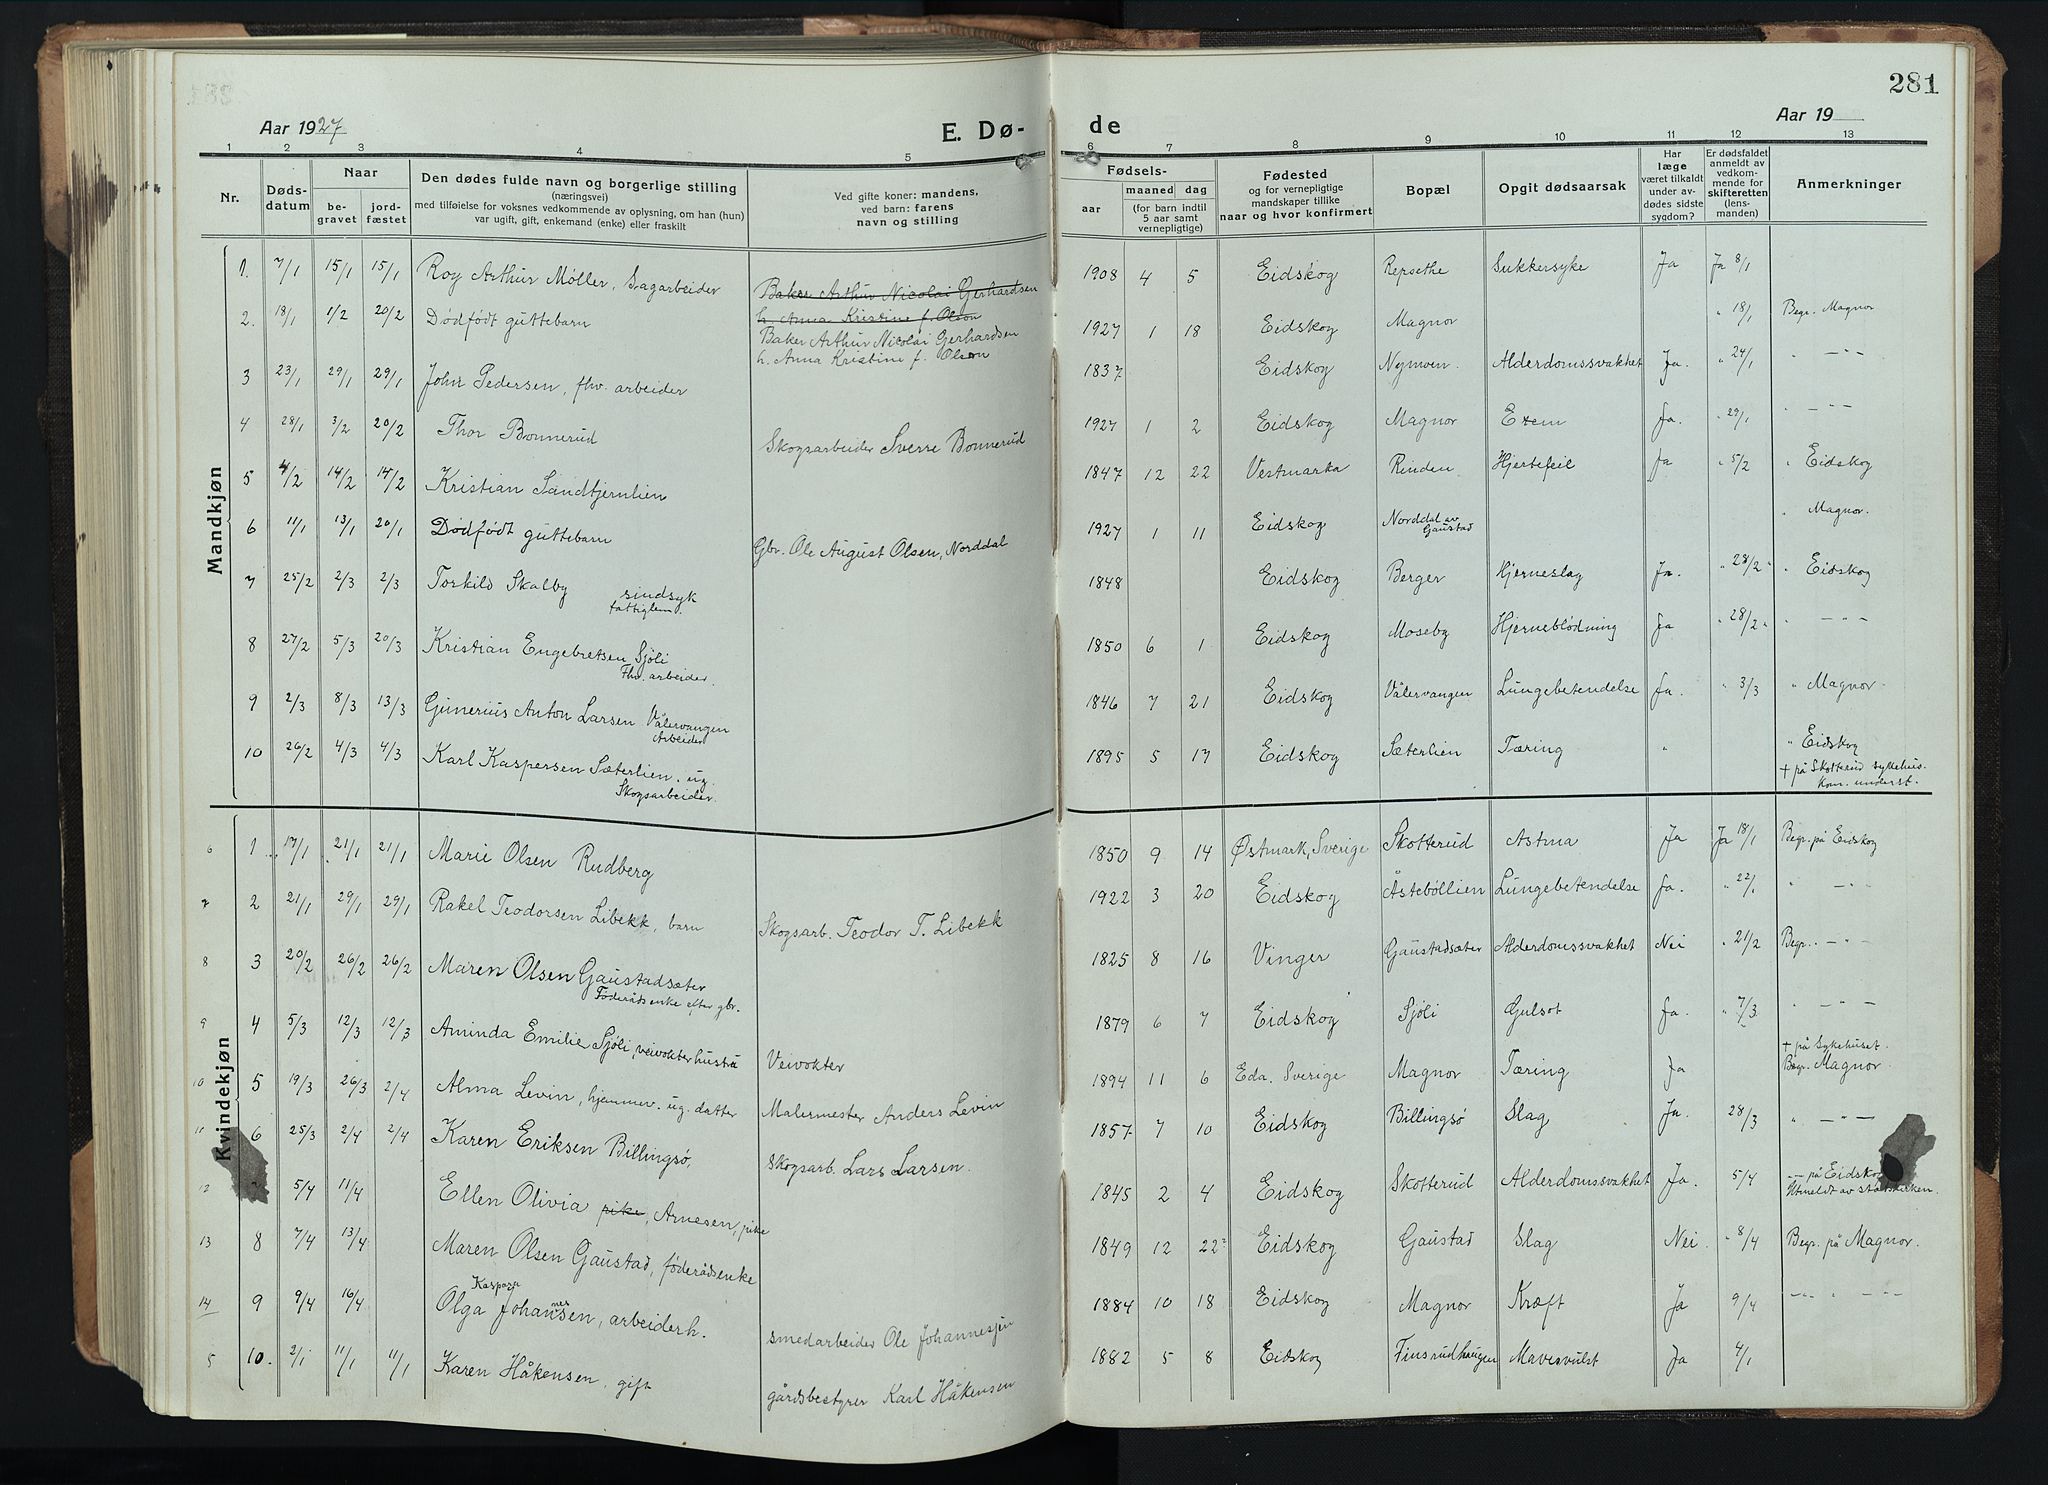 281
Aar 1927
E. Dø-
de
Aar 19
1 2 3 4 5 6 7 8 9 10 11 12 13
Nr.
Døds-
datum
Naar
be-
gravet
jord-
fæstet
Den dødes fulde navn og borgerlige stilling
(næringsvei)
med tilføielse for voksnes vedkommende av oplysning, om han (hun)
var ugift, gift, enkemand (enke) eller fraskilt
Ved gifte koner: mandens,
ved barn: farens
navn og stilling
Fødsels-
aar
maaned dag
(for barn indtil
5 aar samt
vernepligtige)
Fødested
og for vernepligtige
mandskaper tillike
naar og hvor konfirmert
Bopæl
Opgit dødsaarsak
Har
læge
været tilkaldt
under av-
dødes sidste
sygdom?
Er dødsfaldet
anmeldt av
vedkom-
mende for
skifteretten
(lens-
manden)
Anmerkninger
Mandkjøn
1. 7/1 15/1 15/1 Roy Arthur Møller, Sagarbeider 1908 4 5 Eidskog Repsethe Sukkersyke Ja Ja 8/1
Baker Arthur Nicolai Gerhardsen
h. Anna Kristine f. Olson
2. 18/1 1/2 20/2 Dødfødt guttebarn 1927 1 18 Eidskog Magnor " 18/1 Begr. Magnor
Baker Arthur Nicolai Gerhardsen
h. Anna Kristine f. Olson
3 23/1 29/1 29/1 John Pedersen, fhv. arbeider 1837 Eidskog Nymoen Alderdomssvakhet Ja. " 24/1 " — " —
4 28/1 3/2 20/2 Thor Bonnerud Skogsarbeider Sverre Bonnerud 1927 1 2 Eidskog Magnor Exem Ja. " 29/1 " — " —
5 4/2 14/2 14/2 Kristian Sandtjernlien 1847 12 22 Vestmarka Rinden Hjertefeil Ja " 5/2 " Eidskog
6 11/1 13/1 20/1 Dødfødt guttebarn Gbr. Ole August Olsen, Norddal 1927 1 11 Eidskog Norddal av
Gaustad " Magnor.
7 25/2 2/3 2/3 Torkild Skalby sindsyk
fattiglem. 1848 Eidskog Berger Hjerneslag Ja. " 28/2 " " Eidskog
8 27/2 5/3 20/3 Kristian Engebretsen Sjöli
Fhv. arbeider. 1850 6 1 Eidskog Moseby Hjerneblödning Ja " 28/2 " " — " —
9 2/3 8/3 13/3 Gunerius Anton Larsen Vålervangen
Arbeider 1846 7 21 Eidskog Vålervangen Lungebetendelse Ja. " 3/3 " Magnor.
10 26/2 4/3 4/3 Karl Kaspersen Sæterlien. ug.
Skogsarbeider. 1895 5 17 Eidskog Sæterlien Tæring " " Eidskog
+ på Skotterud sykehus.
kom. underst.
Kvindekjøn
6 1 17/1 21/1 21/1 Marie Olsen Rudberg 1850 9 14 Østmark, Sverige Skotterud Astma Ja Ja 18/1 Begr. på Eidskog
7 2 21/1 29/1 29/1 Rakel Teodorsen Libekk, barn Skogsarb. Teodor T. Libekk 1922 3 20 Eidskog Åstebøllien Lungebetendelse Ja. " 22/1 " — " —
8 3 20/2 26/2 26/2 Maren Olsen Gaustadsæter
Föderådsenke efter gbr. 1825 8 16 Vinger Gaustadsæter Alderdomssvakhet Nei " 21/2 Begr. — " —
9 4 5/3 12/3 12/3 Aminda Emilie Sjöli, veivokterhustru Veivokter 1879 6 7 Eidskog Sjöli Gulsot Ja. " 7/3 " — " —
10 5 19/3 26/3 2/4 Alma Levin, hjemmev. ug. datter Malermester Anders Levin 1894 11 6 Eda. Sverige Magnor Tæring Ja + på Sykehuset.
Begr. Magnor
11 6 25/3 2/4 2/4 Karen Eriksen Billingsø, Skogsarb. Lars Larsen. 1857 7 10 Eidskog Billingsø Slag Ja. 28/3 " — " —
12 5/4 11/4 Ellen Olivia pike, Arnesen, pike 1845 2 4 Eidskog Skotterud Alderdomssvakhet Ja. 5/4 — på Eidskog
Utmeldt av statskirken.
13 8 7/4 13/4 Maren Olsen Gaustad, föderådsenke 1849 12 22 Eidskog Gaustad Slag Nei " 8/4 Begr. på Magnor.
14 9 9/4 16/4 Olga Johansen, arbeiderh. smedarbeider Ole Johannesjen 1884 10 18 Eidskog Magnor Kræft Ja 9/4 — " — " — " —
5 10. 2/1 11/1 11/1 Karen Håkensen, gift gårdsbestyrer Karl Håkensen 1882 5 8 Eidskog Finsrudhaugen Mavesvulst Ja 4/1